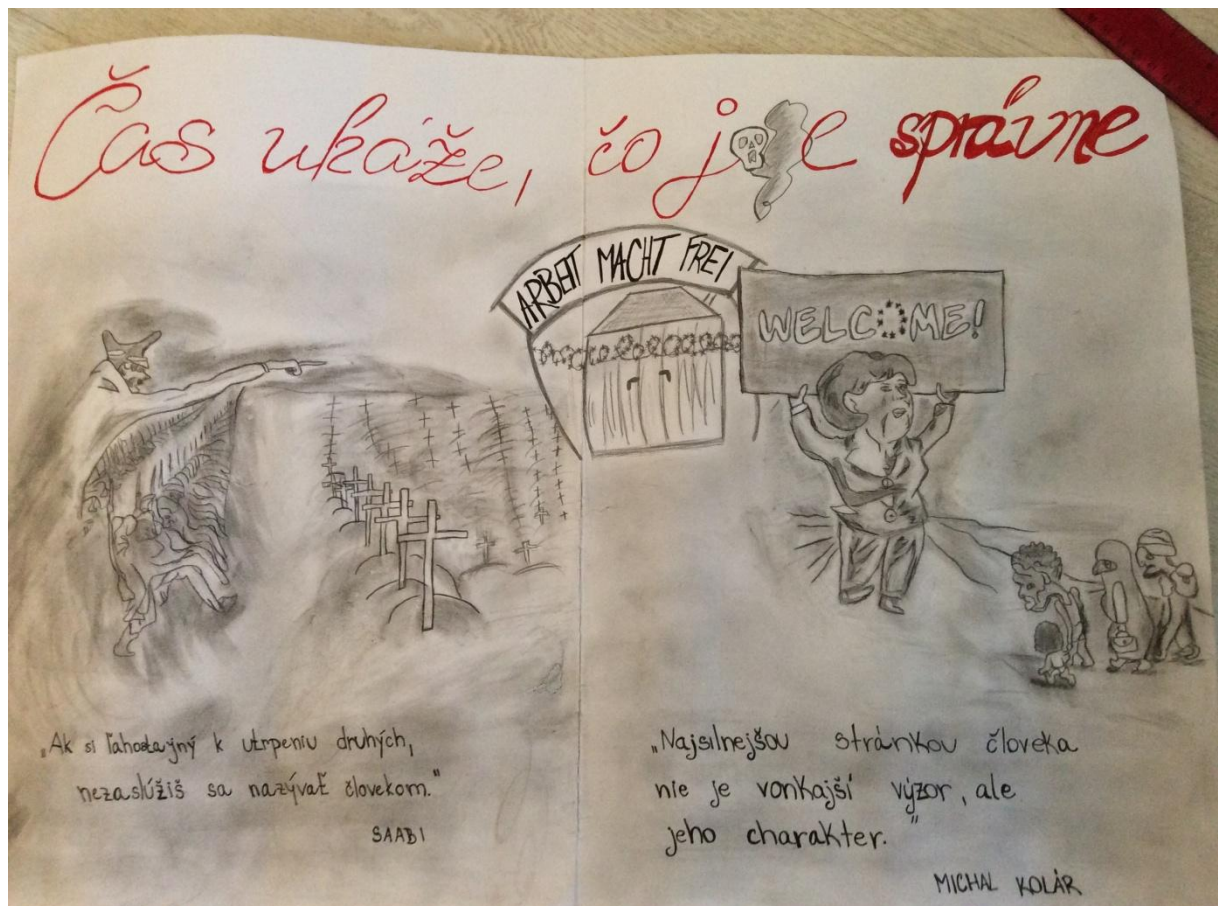 Čas ukáže, čo je správne
ARBEIT MACHT FREI
WELCOME!
„Ak si ľahostajný k utrpeniu druhých,
nezaslúžiš sa nazývať človekom."
SAADI
„Najsilnejšou stránkou človeka
nie je vonkajší výzor, ale
jeho charakter."
MICHAL KOLÁR